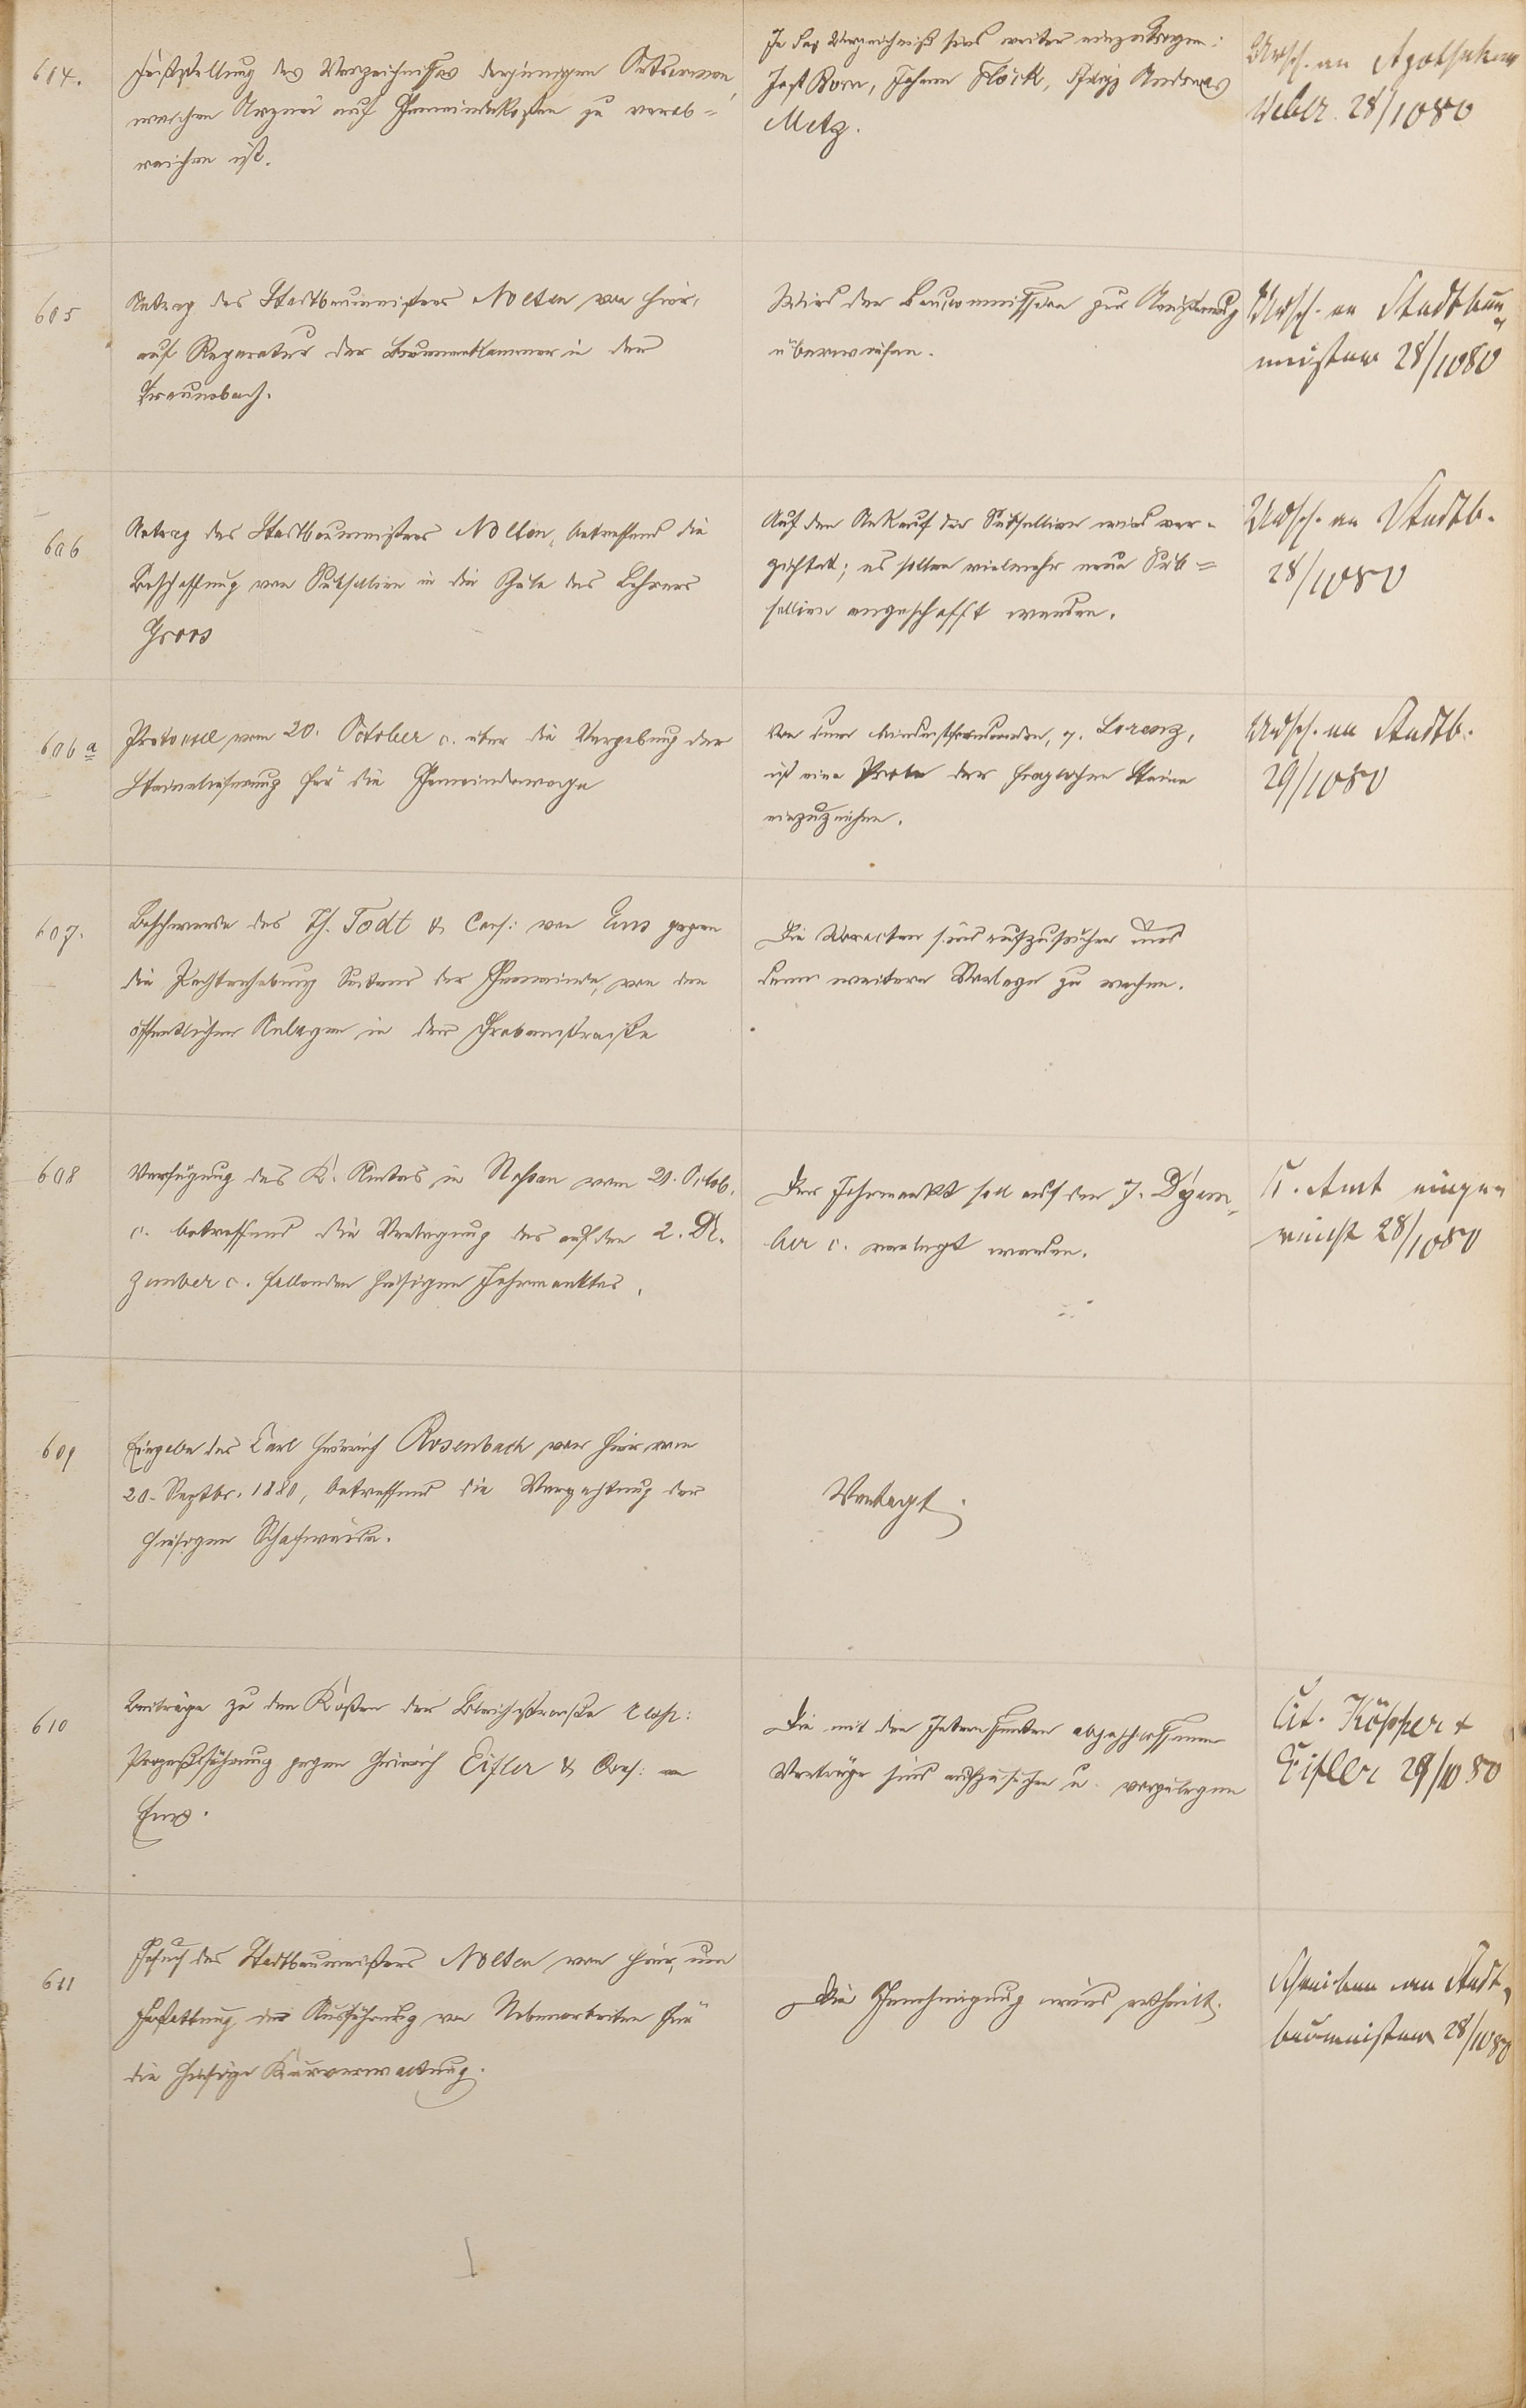 604.
Feststellung des Verzeichnisses derjenigen Ortsarmen,
welchen Arznei auf Gemeindekosten zu verab-
reichen ist.
In das Verzeichniß sind weiter einzutragen:
Jost Born, Johann Flöck, Andreas
Metz.
Absch. an Apotheker
Weber. 28/10 80
605
Antrag des Stadtbaumeisters Nolten von hier,
auf Reparatur der Brunnenkammer in der
Braunebach.
Wird der Baucommission zur Aeußerung
überwiesen.
Absch. an Stadtbau-
meister 28/10 80
606
Antrag des Stadtbaumeisters Nolten, betreffend die
Beschaffung von Subsellien in die Schule des Lehrers
Groos
Auf den Ankauf der Subsellien wird ver-
zichtet; es sollen vielmehr neue Sub-
sellien angeschafft werden.
Absch. an Stadtb.
28/10 80
606 a
Protocoll vom 20. October c. über die Vergebung der
Steinelieferung für die Gemeindewege
Von dem Mindestfordernden, p. Lorenz,
ist eine Probe der fraglichen Steine
einzureichen.
Absch. an Stadtb.
29/10 80
607.
Beschwerde des Th. Todt & Cons: von Ems gegen
die Pachterhebung Seitens der Gemeinde, von den
öffentlichen Anlagen in der Grabenstraße
Die Voracten sind aufzusuchen und
dann weitere Vorlage zu machen.
608
Verfügung des K. Amtes in Nassau vom 21. Octob.
c. betreffend die Verlegung des auf den 2. De-
zember c. fallenden hiesigen Jahrmarktes.
Der Jahrmarkt soll auf den 7. Dezem-
ber c. verlegt werden.
K. Amt einge-
reicht 28/10 80
609
Eingabe des Carl Heinrich Rosenbach von hier vom
20. Septbr. 1880, betreffend die Verpachtung der
hiesigen Schafweide.
Vertagt.
610
Beiträge zu den Kosten der Bleichstraße resp:
Prozeßführung gegen Heinrich Eisler & Cons: von
Ems.
Die mit den Interessenten abgeschlossenen
Verträge sind aufzusuchen u. vorzulegen
Cit. Köpper &
Eisler 29/10 80
611
Gesuch des Stadtbaumeisters Nolten von hier, um
Gestattung der Ausführung von Nebenarbeiten für
die hiesige Kurverwaltung.
Die Genehmigung wird ertheilt.
Schreiben an Stadt-
baumeister 28/10 80